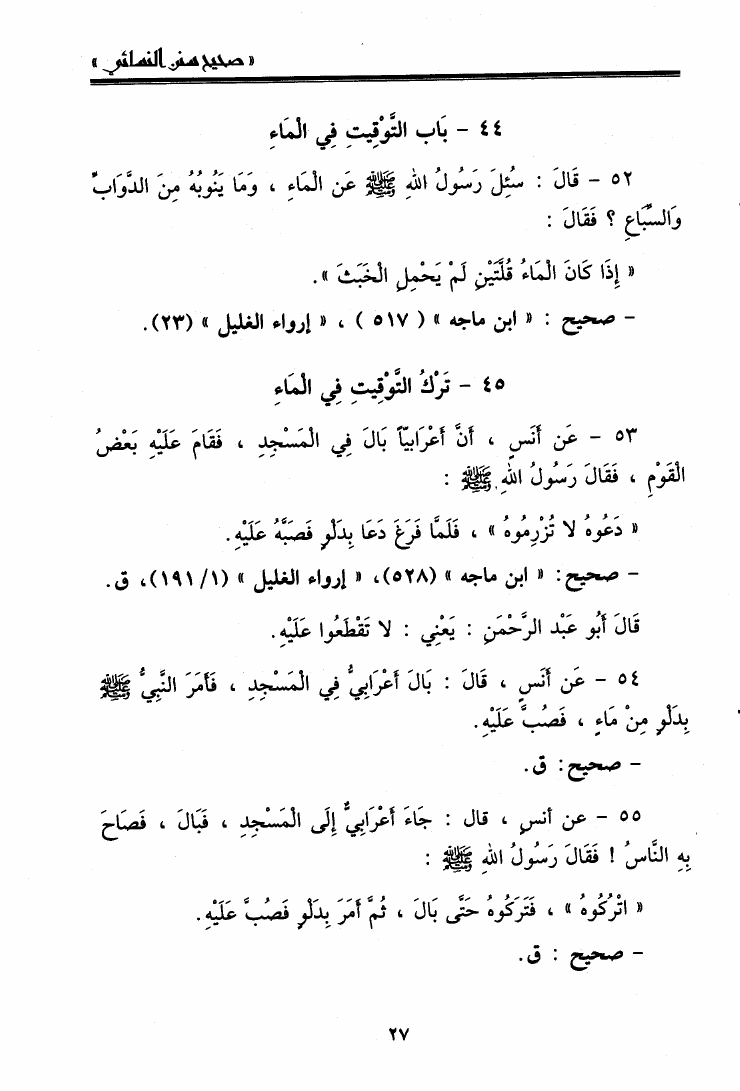 « صحيح سنن النسائي »
٤٤ - بَاب التَّوْقِيتِ فِي الْمَاءِ
٥٢ - قَالَ : سُئِلَ رَسُولُ اللهِ ﷺ عَنِ الْمَاءِ ، وَمَا يَنُوبُهُ مِنَ الدَّوَابِّ
وَالسِّبَاعِ ؟ فَقَالَ :
« إِذَا كَانَ الْمَاءُ قُلَّتَيْنِ لَمْ يَحْمِلِ الْخَبَثَ ».
- صحيح : « ابن ماجه » ( ٥١٧ ) ، « إرواء الغليل » (٢٣).
٤٥ - تَرْكُ التَّوْقِيتِ فِي الْمَاءِ
٥٣ - عَن أَنَسٍ ، أَنَّ أَعْرَابيّاً بَالَ فِي الْمَسْجِدِ ، فَقَامَ عَلَيْهِ بَعْضُ
الْقَوْمِ ، فَقَالَ رَسُولُ اللهِ ﷺ :
« دَعُوهُ لا تُزْرِمُوهُ » ، فَلَمَّا فَرَغَ دَعَا بِدَلْوٍ فَصَبَّهُ عَلَيْهِ.
- صحيح: « ابن ماجه » (٥٢٨)، « إرواء الغليل » (١/ ١٩١)، ق.
قَالَ أَبُو عَبْد الرَّحْمَنِ : يَعْنِي : لا تَقْطَعُوا عَلَيْهِ.
٥٤ - عَن أَنَسٍ ، قَالَ : بَالَ أَعْرَابِيٌّ فِي الْمَسْجِدِ ، فَأَمَرَ النَّبِيُّ ﷺ
بِدَلْوٍ مِنْ مَاءٍ ، فَصُبَّ عَلَيْهِ.
- صحيح: ق.
٥٥ - عن أنسٍ ، قال : جَاءَ أَعْرَابِيٌّ إِلَى الْمَسْجِدِ ، فَبَالَ ، فَصَاحَ
بِهِ النَّاسُ ! فَقَالَ رَسُولُ اللهِ ﷺ :
« اتْرُكُوهُ » ، فَتَرَكُوهُ حَتَّى بَالَ ، ثُمَّ أَمَرَ بِدَلْوٍ فَصُبَّ عَلَيْهِ.
- صحيح : ق.
٢٧